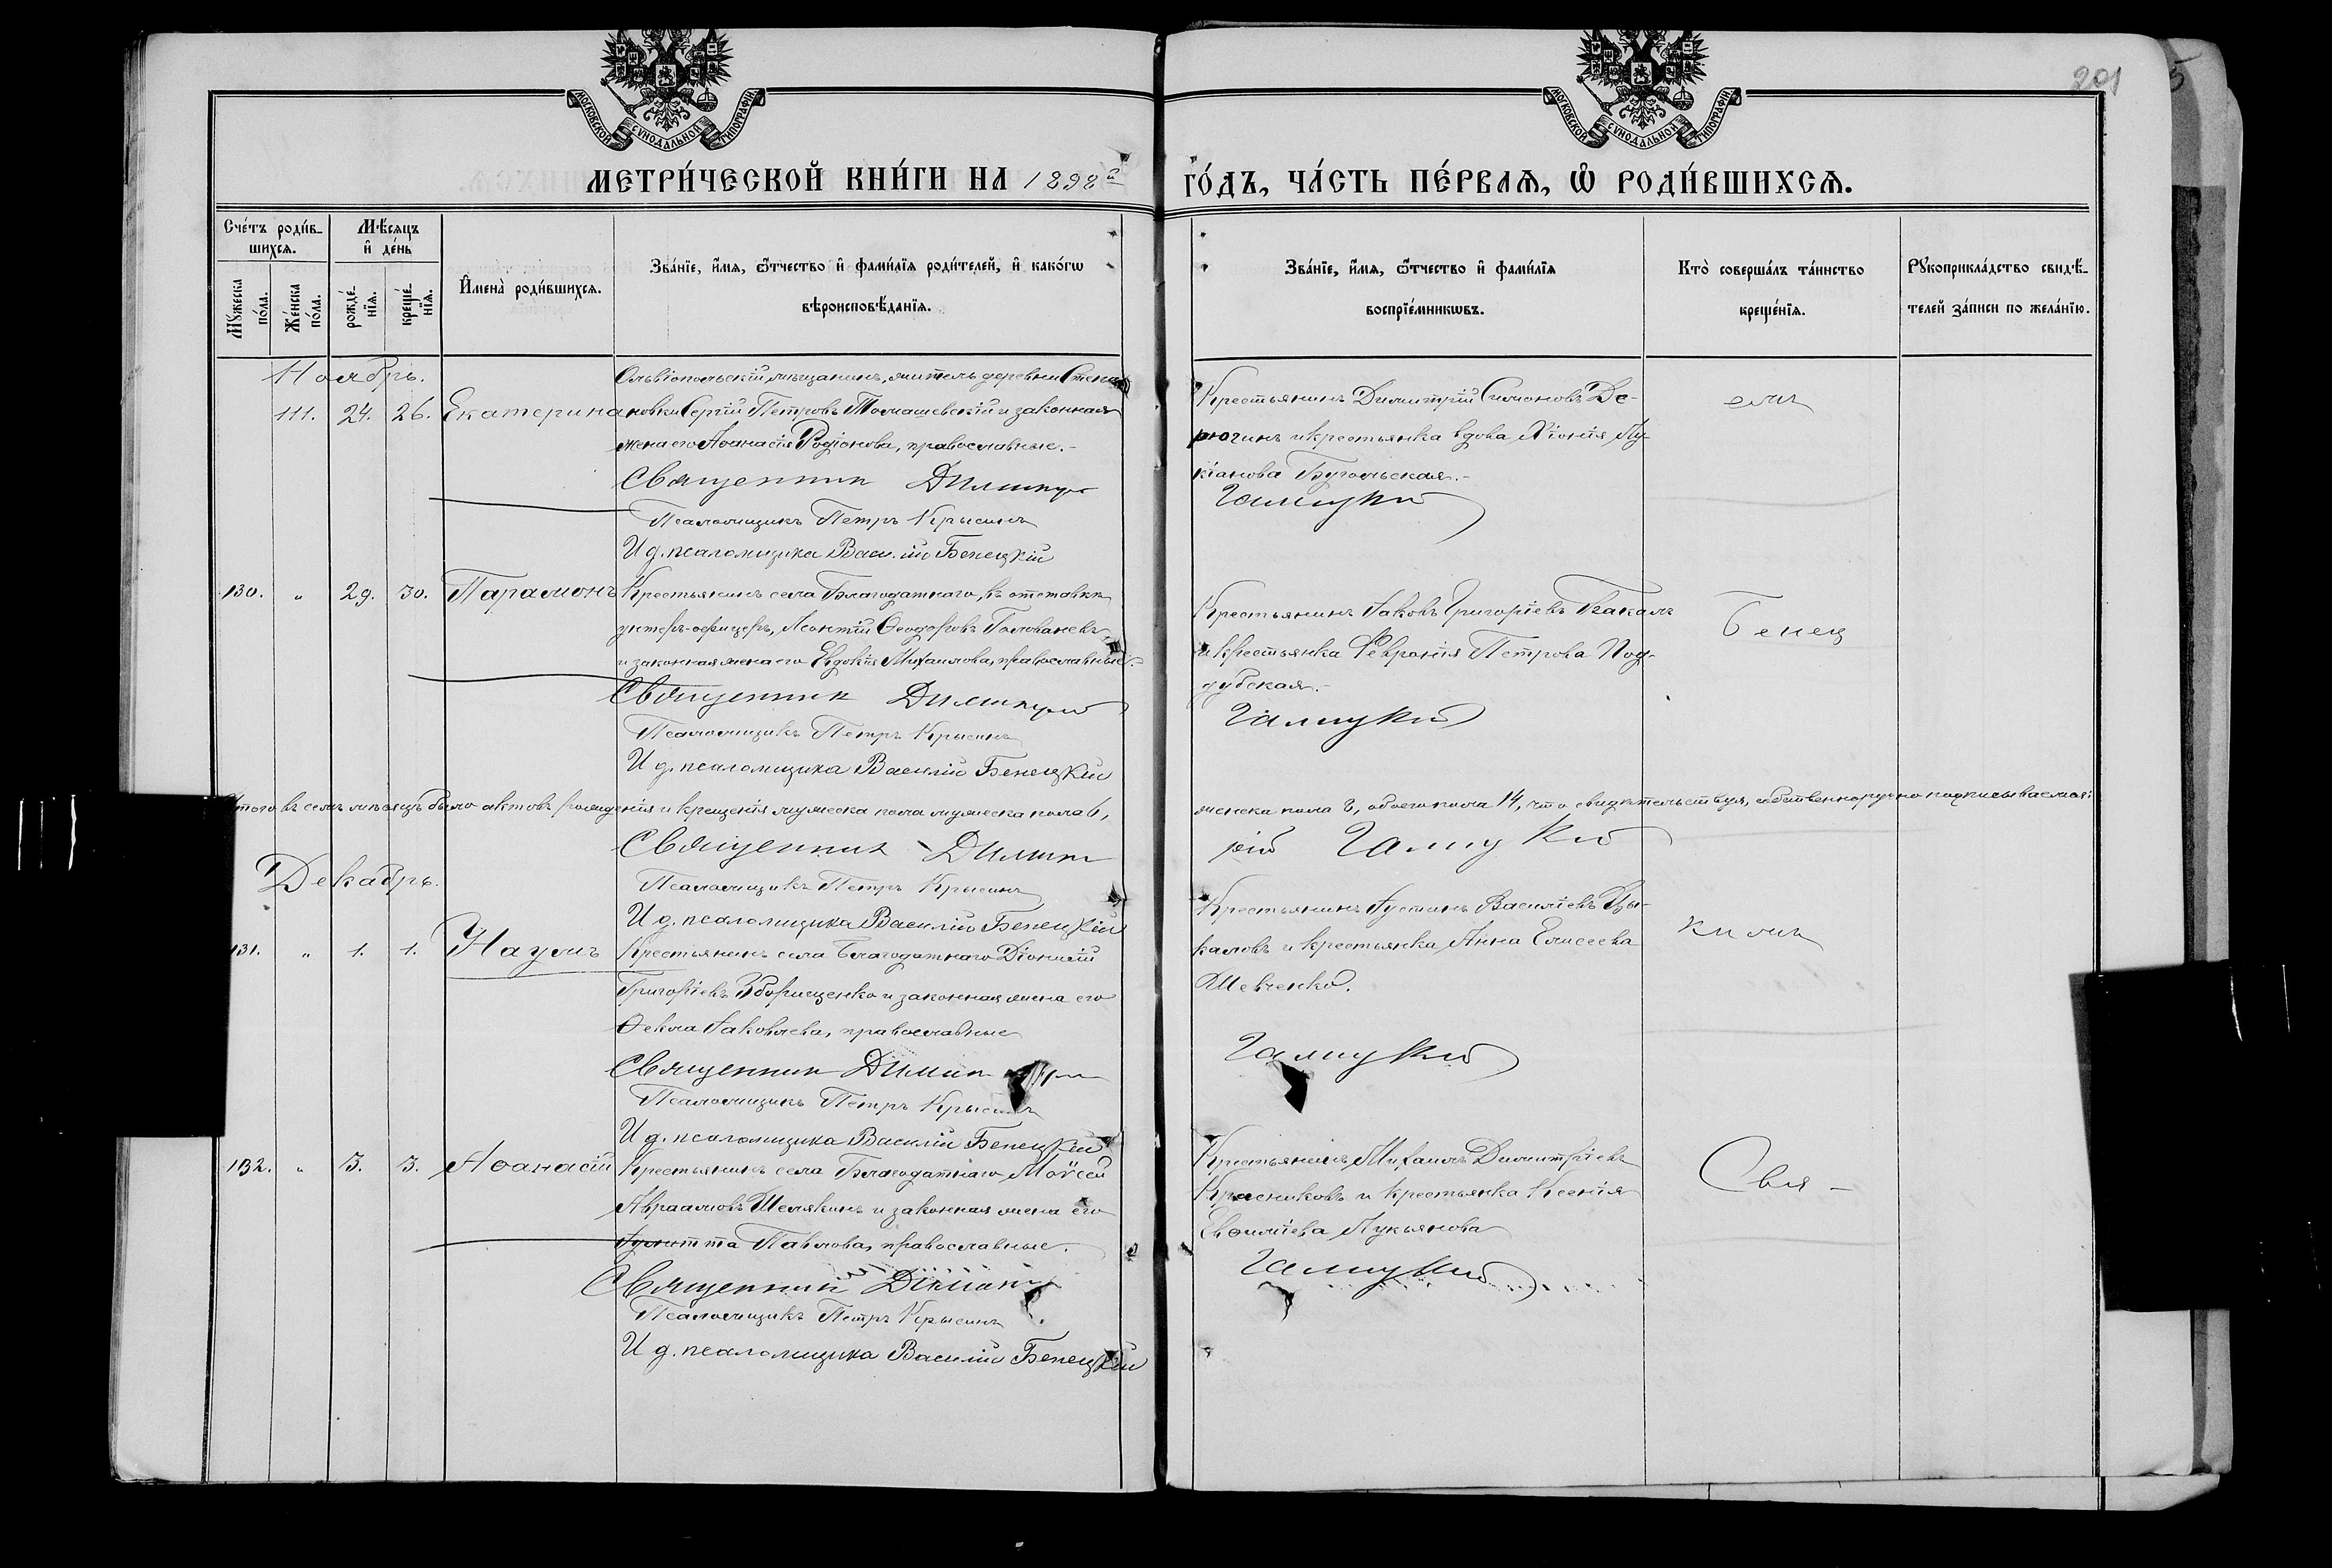 201
5
МОСКОВСКОЙ СѴНОДАЛЬНОЙ ТИПОГРАФІИ
МОСКОВСКОЙ СѴНОДАЛЬНОЙ ТИПОГРАФІИ
МЕТРИ́ЧЕСКОЙ КНИ́ГИ НА 1898й
ГО́ДЪ, ЧА́СТЬ ПЕ́РВАѦ, Ѡ РОДИ́ВШИХСѦ.
Сче́тъ роди́в-
шихсѧ.
Мѣ́сѧцъ
и҆ де́нь
Мꙋ́жеска по́ла.
Же́нска по́ла.
рожде́-нїѧ.
креще́-нїѧ.
И҆мена̀ роди́вшихсѧ.
Зва́нїе, и҆́мѧ, ѻ҆́тчество и҆ фами́лїѧ роди́телей, и҆ како́гѡ
вѣроисповѣ́данїѧ.
Зва́нїе, и҆́мѧ, ѻ҆́тчество и҆ фами́лїѧ
воспрїе́мникѡвъ.
Кто̀ соверша́лъ та́инство
креще́нїѧ.
Рꙋкоприкла́дство свидѣ́-
телей за́писи по жела́нїю.
Ноябрь.
Ольвіопольскій мѣщанинъ, житель деревни Степа
111. 24. 26. Екатерина новки Сергій Петровъ Томашевскій и законная
жена его Аѳанасія Родіонова, православные.-
Священник Димитр
Псаломщикъ Петръ Крысинъ
И д. псаломщика Василій Бенецкій
Крестьянинъ Димитрій Симоновъ Де-
рюгинъ и крестьянка вдова Хіонія Лу-
кіанова Бугольская.-
Галицкій
емъ
130. " 29. 30. Парамонъ Крестьянинъ села Благодатнаго, въ отставкѣ
унтеръ-офицеръ, Леонтій Ѳеодоровъ Голованевъ
и законная жена его Евдокія Михаилова, православные.-
Священник Димитрій
Псаломщикъ Петръ Крысинъ
И д. псаломщика Василій Бенецкій
Крестьянинъ Іаковъ Григоріевъ Бакалъ
и крестьянка Февронія Петрова Под-
дубская.-
Галицкій
Бенец
Итого въ семъ мѣсяцѣ было актовъ рожденія и крещенія мужеска пола 6,
женска пола 8, обоего пола 14, что свидѣтельствуя, собственноручно подписываемся:
Священник Димит
рій Галицкій
Псаломщикъ Петръ Крысинъ
И д. псаломщика Василій Бенецкій
Декабрь.
131. " 1. 1. Наумъ Крестьянинъ села Благодатнаго Діонисій
Григоріевъ Зборищенко и законная жена его
Ѳекла Іаковлева, православные
Священник Димит
Псаломщикъ Петръ Крысинъ
И д. псаломщика Василій Бенецкій
Крестьянинъ Іустинъ Василіевъ Цы-
каловъ и крестьянка Анна Елисеева
Шевченко.
Галицкій
кимъ
132. " 3. 3. Аѳанасій Крестьянинъ села Благодатнаго Моѵсей
Авраамовъ Шелякинъ и законная жена его
Іулитта Павлова, православные.
Священник Димит
Псаломщикъ Петръ Крысинъ
И д. псаломщика Василій Бенецкій
Крестьянинъ Михаилъ Димитріевъ
Красниковъ и крестьянка Ксенія
Евѳиміева Лукьянова
Галицкій
Свя -